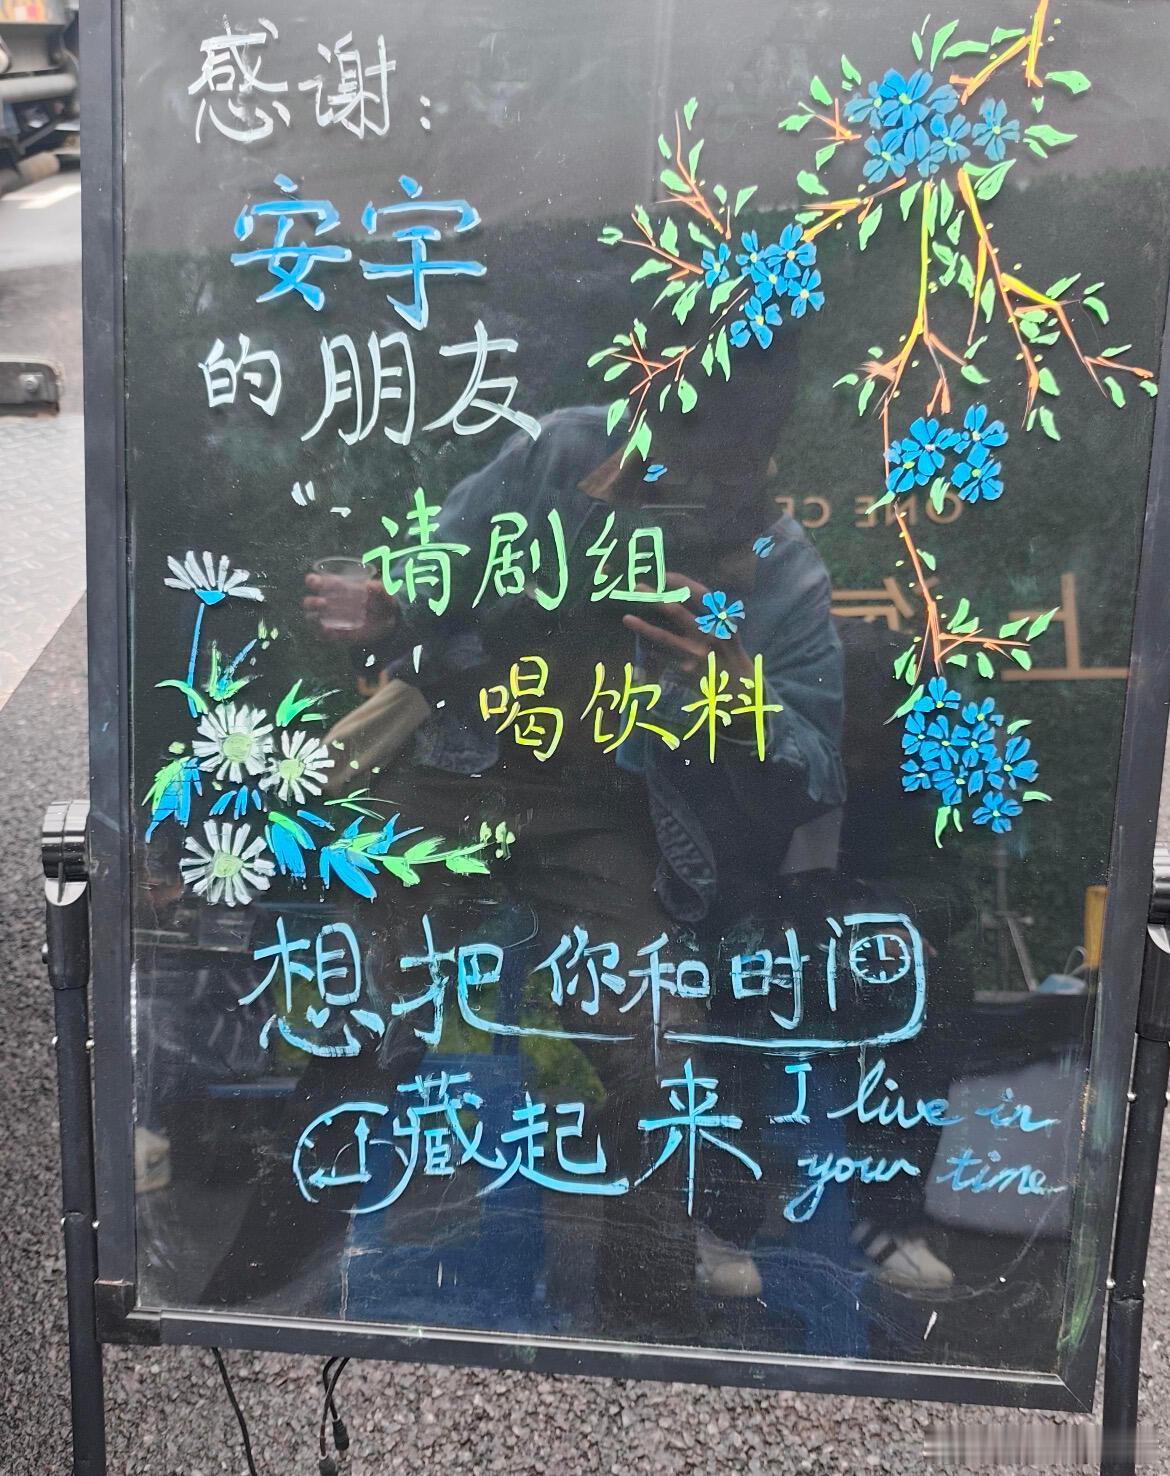 感谢：
安宇
的朋友
请剧组
喝饮料
想把你和时间
藏起来 I live in
your time
ONE CE